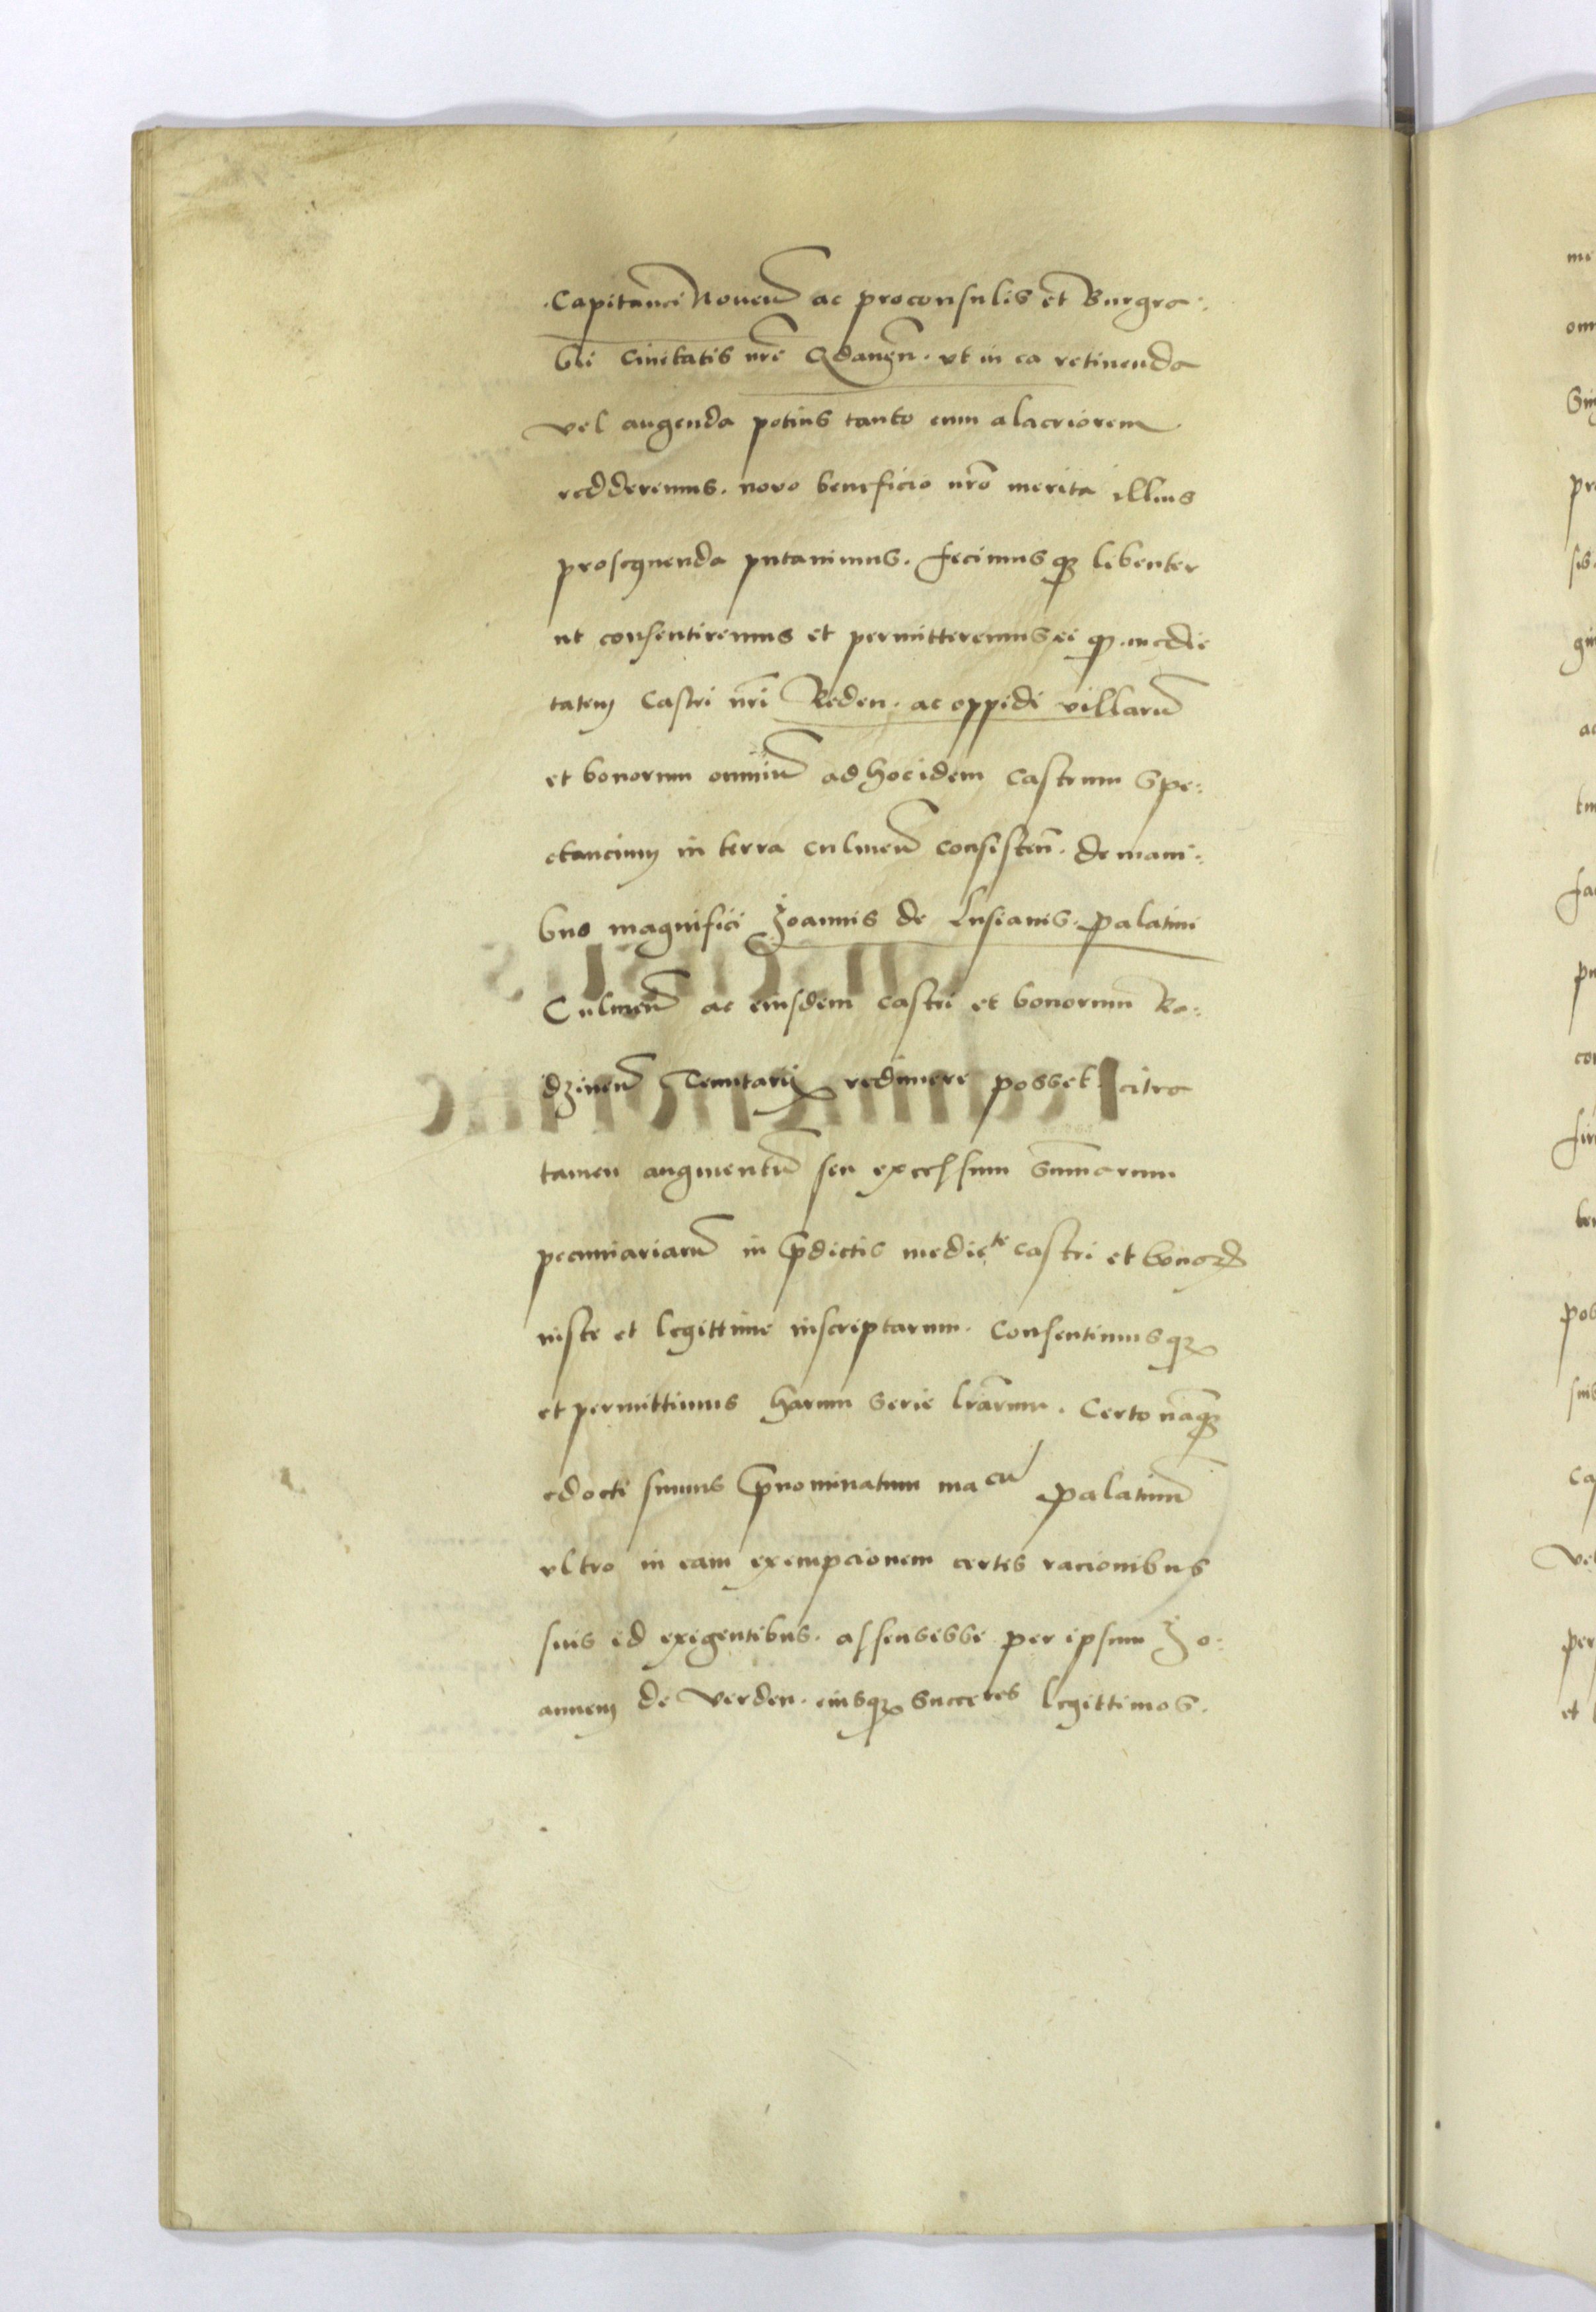 Capitanei Noven̄ ac proconsulis et Burgra:
bii Civitatis nr̄e Gdanen̄. ut in ea retinenda
vel augenda potius tanto eum alacriorem
redderemus. novo beneficio nr̄o merita illius
prosequenda putavimus. fecimusq3 libenter
ut consentiremus et permitteremus ei q3 medie
tatem Castri nr̄i Reden. ac oppidi villarū
et bonorum omniū ad hoc idem Castrum Spe:
ctancium in terra culmen̄ consisten̄. de mani:
bus magnifici Joannis de Lusianis. palatini
Culmen̄ ac eiusdem castri et bonorum Ra:
dzinen̄ Tenutarij redimere posset citra
tamen augmentū seu excessum Summarum
pecuniariarū in p̄dictis medie^te castri et bonor
iuste et legittime inscriptarum. Consentimusq3
et permittimus harum serie lr̄arum. Certo nāq3
edocti sumus p̄nominatum ma^cū palatinū
ultro in eam exempcionem certis racionibus
suis id exigentibus. assensisse per ipsum Jo:
annem de Verden. eiusq3 succe^res legittimos.